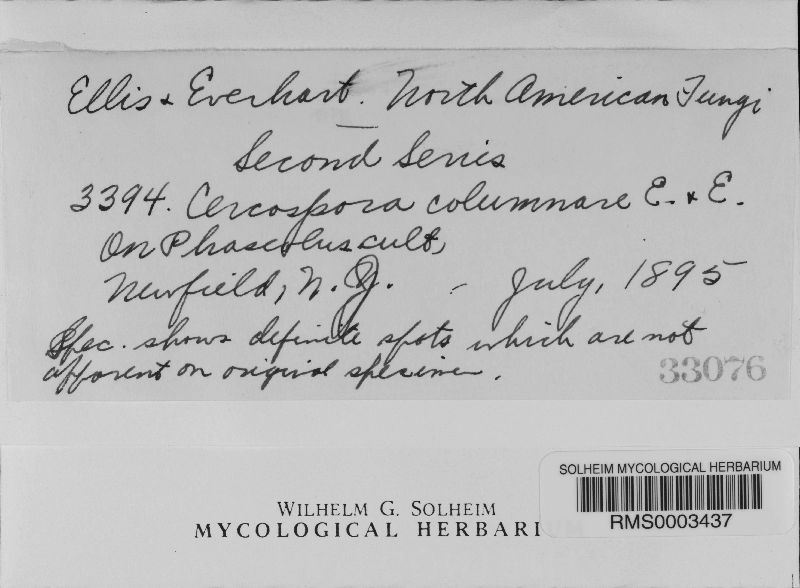 Ellis & Everhart. North American Fungi
Second Series
3394. Cercospora columnare E. & E.
On Phaseolus cult,
Newfield, N. J. - July, 1895
Spec. shows definite spots which are not
apparent on original specimen.
33076
SOLHEIM MYCOLOGICAL HERBARIUM
RMS0003437
WILHELM G. SOLHEIM
MYCOLOGICAL HERBARI